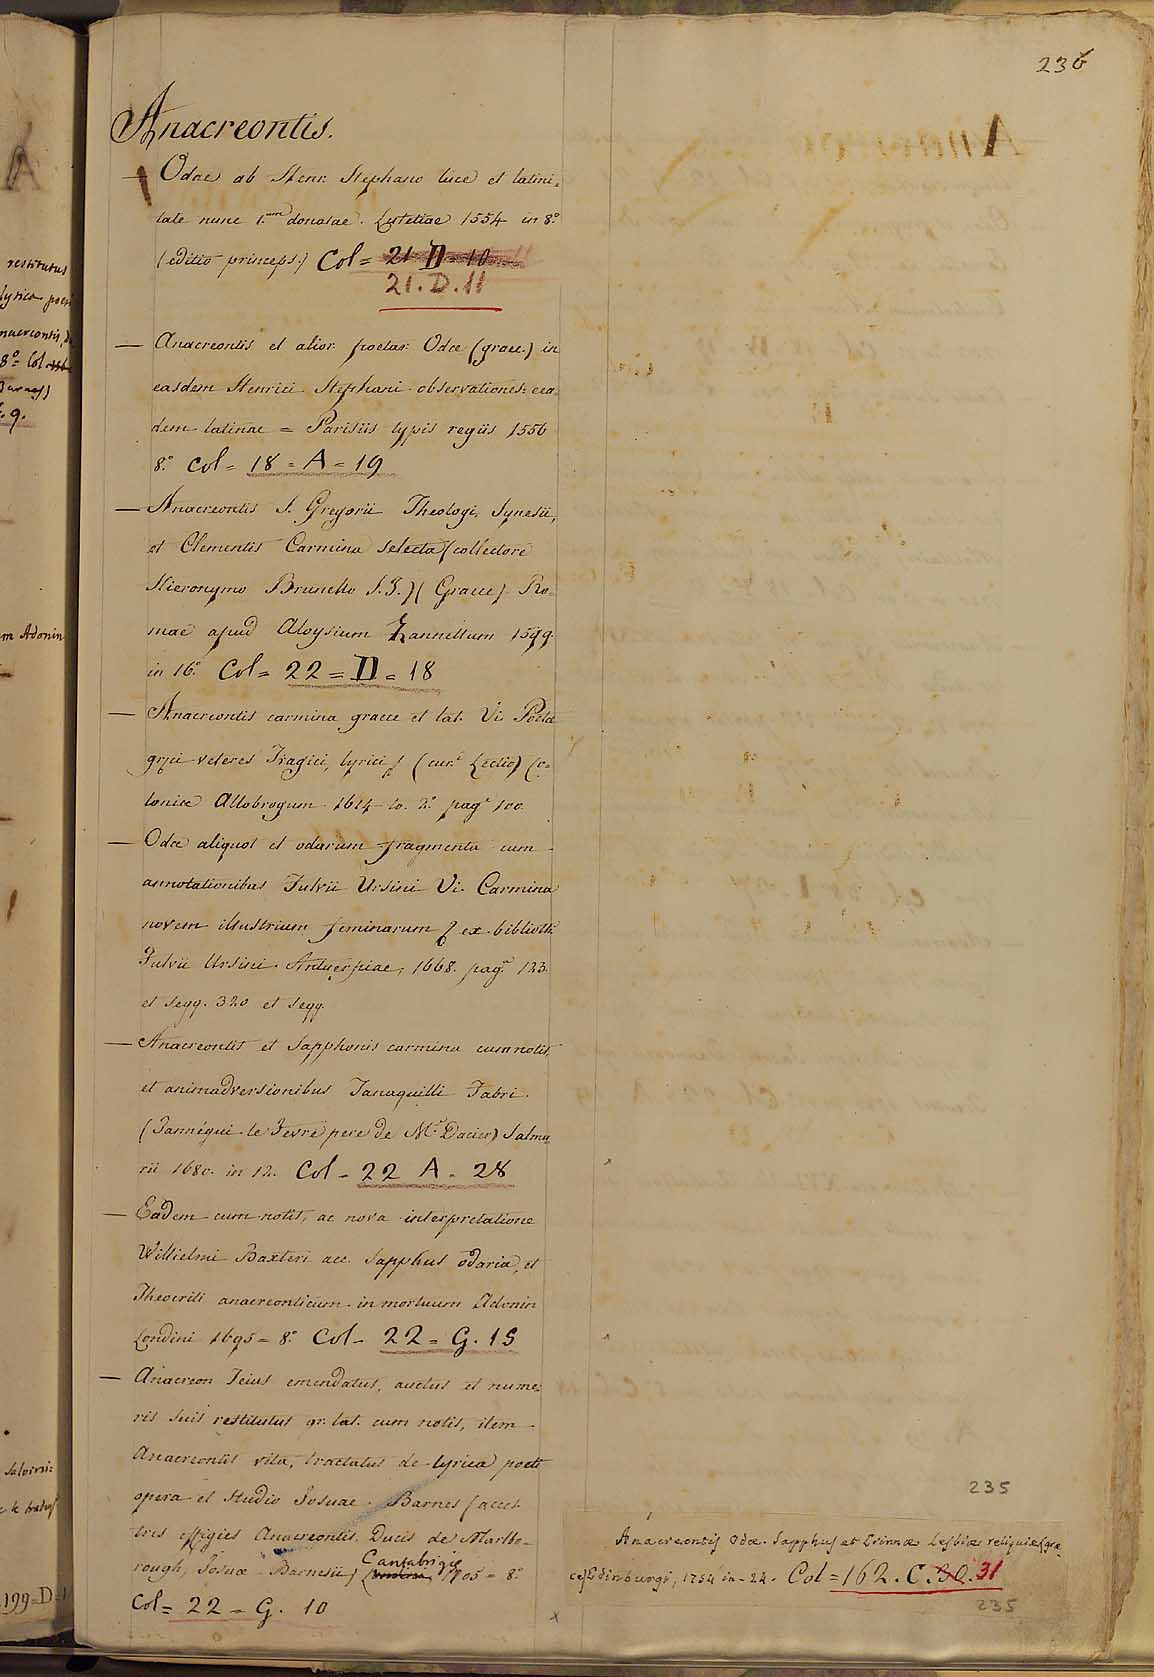 236
Anacreontis.
— Odae ab Henr. Stephano luce et latini=
tate nunc 1.um donatae. Lutetiae 1554 in 8.º
(editio princeps.) Col = 21 D = 10
21. D. 11
— Anacreontis et alior. poetar. Odae (graec.) in
easdem Henrici Stephani observationes: eæ
dem latinae = Parisiis typis regiis 1556
8.º Col = 18 = A = 19
— Anacreontis S. Gregorii Theologi, Synesii,
et Clementis Carmina selecta (collectore
Hieronymo Brunello S.J.) (Graece) Ro=
mae apud Aloysium Zannettum 1599.
in 16.º Col = 22 = D = 18
— Anacreontis carmina graece et lat. Vi. Poetæ
græci veteres Tragici, lyrici (cur.e Lectio) Co=
loniæ Allobrogum 1614 to. 2.º pag.a 100.
— Odæ aliquot et odarum fragmenta cum
annotationibus Fulvii Ursini Vi. Carmina
novem illustrium feminarum ex biblioth.
Fulvii Ursini Antuerpiae, 1668. pag.a 123.
et segg. 320 et segg.
— Anacreontis et Sapphonis carmina cum notis,
et animadversionibus Tanaquilli Fabri.
(Tannégui le Fevre pere de M.r Dacier) Salmu
rii 1680. in 12. Col = 22 A = 28
— Eadem cum notis, ac nova interpretatione
Willielmi Baxteri acc. Sapphus odaria, et
Theocriti anacreonticum in mortuum Adonin
Londini 1695 = 8.º Col = 22 = G. 15
— Anacreon Teius emendatus, auctus et nume=
ris suis restitutus gr. lat. cum notis, item
Anacreontis vita, tractatus de lyrica poesi
opera et studio Josuae Barnes (acces.
tres effigies Anacreontis, Ducis de Marlbo=
rough, Josuæ Barnesii) Cantabrigiæ 1705 = 8.º
Col = 22 = G. 10
235
Anacreontis Odæ. Sapphus et Erinnæ Lesbiæ reliquiæ (græ
ce) Edinburgi, 1754 in = 24. Col = 162. C. 30. 31
235
A
restitutus
lyrica poesi
8.º Col
9.
m Adonin
199=D=1